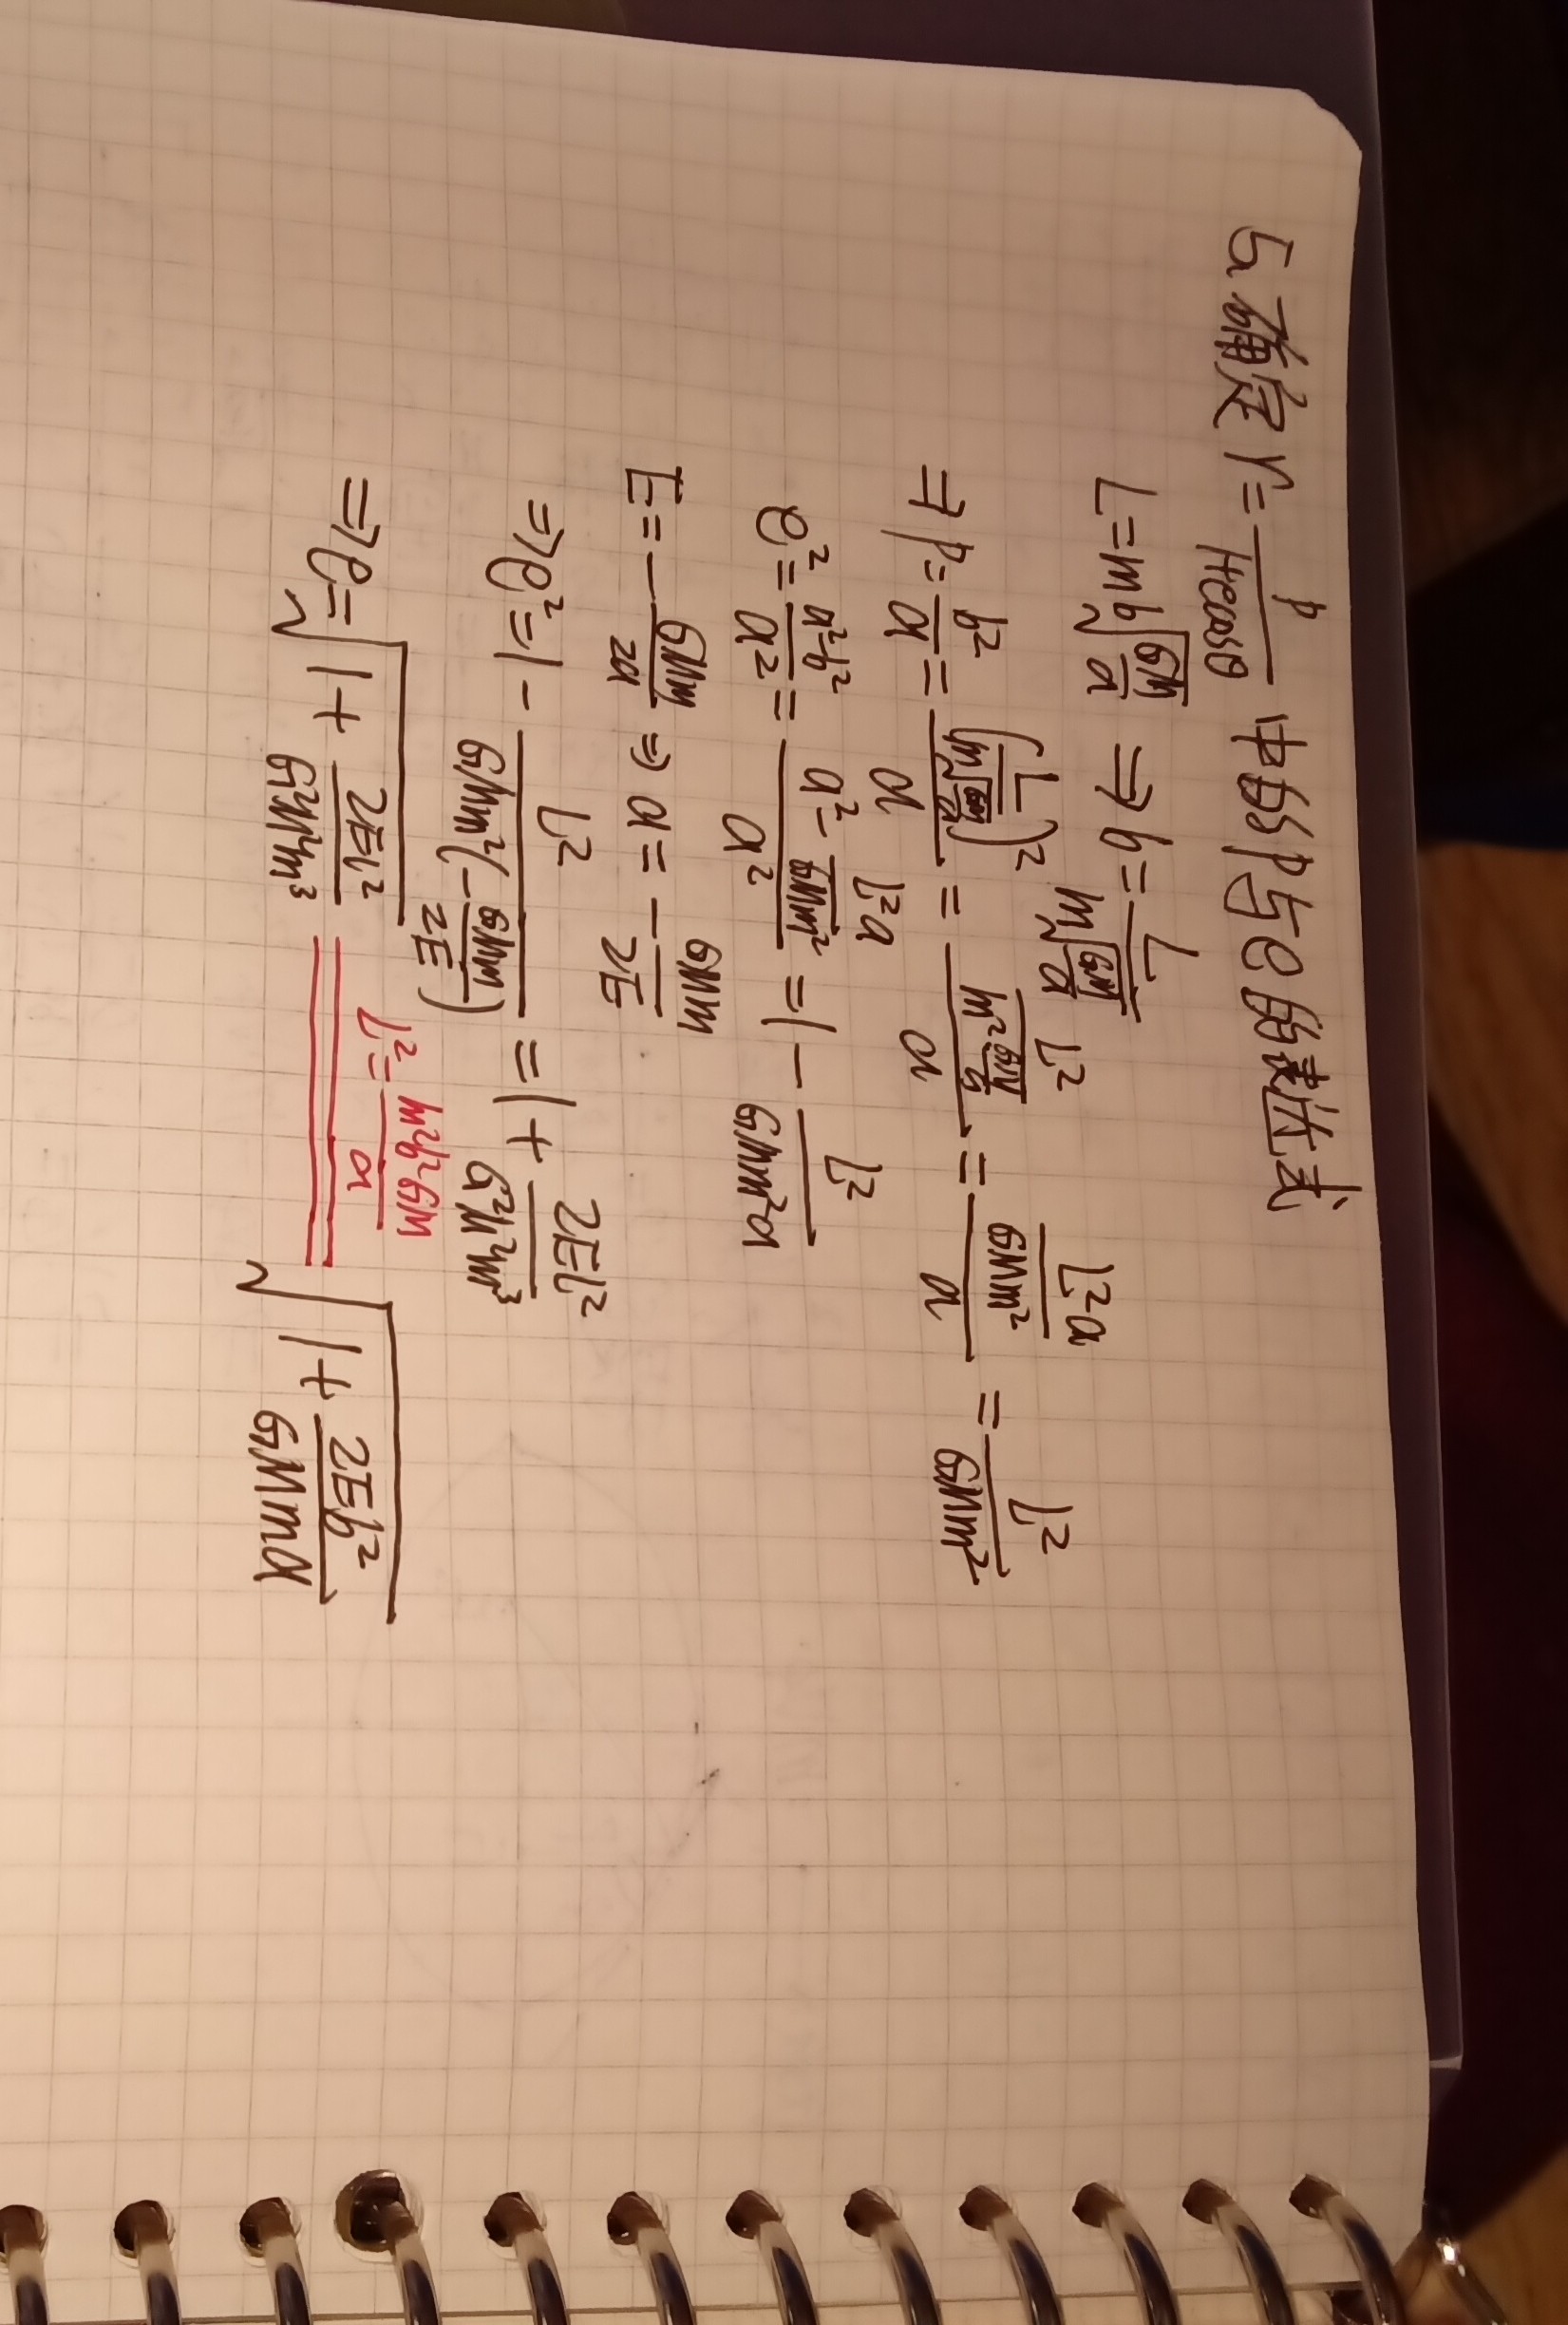 5.确定 r=p/(1+ecosθ) 中的p与e的表达式
L=mb√(GM/a) ⇒ b=L/(m√(GM/a))
⇒ p=b²/a=(L/(m√(GM/a)))²/a=(L²/(m²GM/a))/a=(L²a/(GMm²))/a=L²/(GMm²)
e²=(a²-b²)/a²=(a²-L²a/(GMm²))/a²=1-L²/(GMm²a)
E=-GMm/(2a) ⇒ a=-GMm/(2E)
⇒e²=1-L²/(GMm²(-GMm/(2E)))=1+2EL²/(G²M²m³)
⇒e=√(1+2EL²/(G²M²m³)) ==== L²=m²b²GM/a √(1+2Eb²/(GMma))